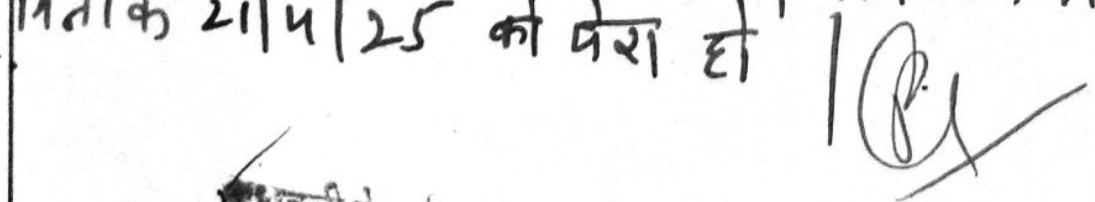 दिनांक 21/4/25 को पेश हो।